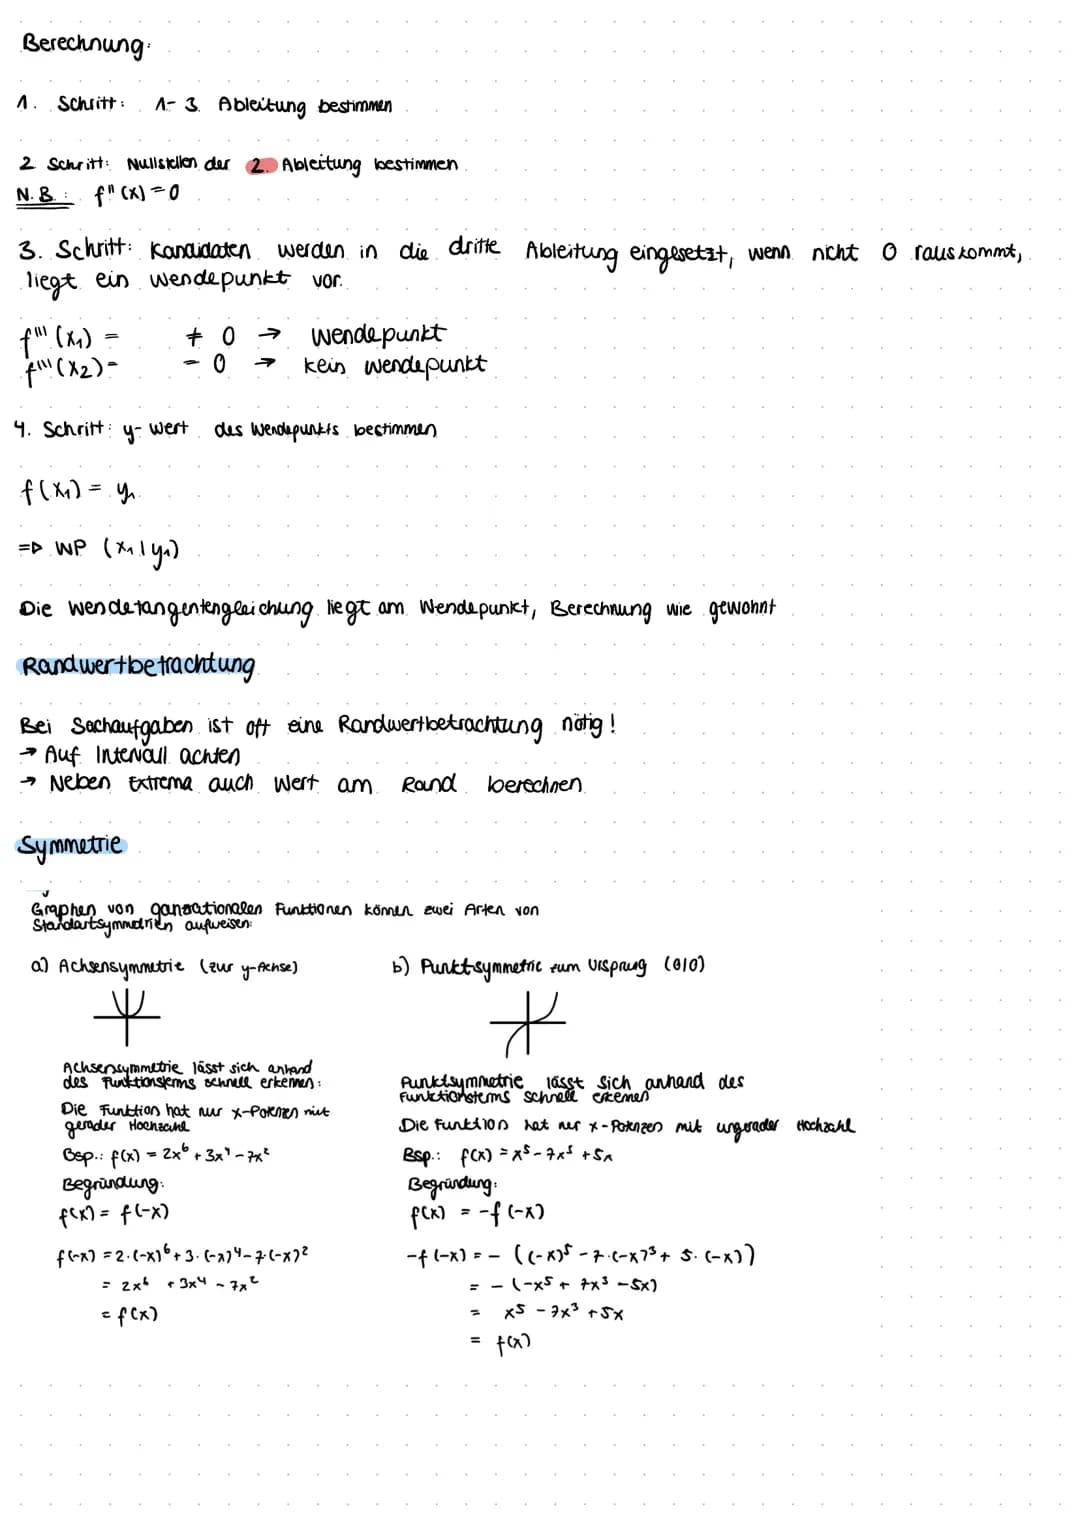 Berechnung:
1. Schritt: 1-3. Ableitung bestimmen
2 Schritt: Nullstellen der 2. Ableitung bestimmen
N.B.: f''(x) = 0
3. Schritt: Kandidaten werden in die dritte Ableitung eingesetzt, wenn nicht 0 rauskommt,
liegt ein Wendepunkt vor.
f'''(x₁) = ≠ 0 → Wendepunkt
f'''(x₂) = = 0 → kein Wendepunkt
4. Schritt: y-Wert des Wendepunkts bestimmen
f(x₁) = y₁
=> WP (x₁|y₁)
Die Wendetangentengleichung liegt am Wendepunkt, Berechnung wie gewohnt
Randwertbetrachtung
Bei Sachaufgaben ist oft eine Randwertbetrachtung nötig!
→ Auf Intervall achten
→ Neben Extrema auch Wert am Rand berechnen
Symmetrie
Graphen von ganzrationalen Funktionen können zwei Arten von
Standartsymmetrien aufweisen:
a) Achsensymmetrie (zur y-Achse)
Achsensymmetrie lässt sich anhand
des Funktionsterms schnell erkennen:
Die Funktion hat nur x-Potenzen mit
gerader Hochzahl
Bsp.: f(x) = 2x⁶ + 3x⁴ - 7x²
Begründung:
f(x) = f(-x)
f(-x) = 2·(-x)⁶ + 3·(-x)⁴ - 7·(-x)²
= 2x⁶ + 3x⁴ - 7x²
= f(x)
b) Punktsymmetrie zum Ursprung (0|0)
Punktsymmetrie lässt sich anhand des
Funktionsterms schnell erkennen
Die Funktion hat nur x-Potenzen mit ungerader Hochzahl
Bsp.: f(x) = x⁵ - 7x³ + 5x
Begründung:
f(x) = -f(-x)
-f(-x) = - ((-x)⁵ - 7·(-x)³ + 5·(-x))
= - (-x⁵ + 7x³ - 5x)
= x⁵ - 7x³ + 5x
= f(x)